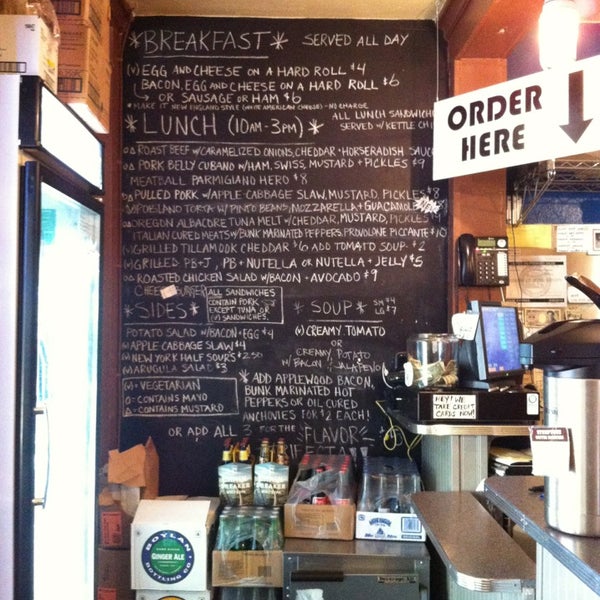 *BREAKFAST* SERVED ALL DAY
(V) EGG AND CHEESE ON A HARD ROLL $4
BACON, EGG AND CHEESE ON A HARD ROLL $6
OR SAUSAGE OR HAM $6
* MAKE IT NEW ENGLAND STYLE (WHITE AMERICAN CHEESE) - NO CHARGE
*LUNCH (10AM-3PM)* ALL LUNCH SANDWICHE
SERVED W/ KETTLE CHI
ROAST BEEF W/CARAMELIZED ONIONS, CHEDDAR + HORSERADISH SAUC
PORK BELLY CUBANO W/HAM, SWISS, MUSTARD + PICKLES $9
MEATBALL PARMIGIANO HERO $8
PULLED PORK W/APPLE CABBAGE SLAW, MUSTARD, PICKLES $8
TORTA W/ PINTO BEANS, MOZZARELLA + GUACAMOLE
OREGON ALBACORE TUNA MELT W/CHEDDAR, MUSTARD, PICKLES
ITALIAN CURED MEATS W/BUNK MARINATED PEPPERS, PROVOLONE PICCANTE $10
(V) GRILLED TILLAMOOK CHEDDAR $6 ADD TOMATO SOUP $2
(V) GRILLED PB+J, PB + NUTELLA OR NUTELLA + JELLY $5
ROASTED CHICKEN SALAD W/BACON + AVOCADO $9
*SIDES*
ALL SANDWICHES
CONTAIN PORK
EXCEPT TUNA OR
(V) SANDWICHES
POTATO SALAD W/BACON + EGG $4
(V) APPLE CABBAGE SLAW $4
(V) NEW YORK HALF SOURS $2.50
(V) ARUGULA SALAD $3
(V) = VEGETARIAN
O = CONTAINS MAYO
Δ = CONTAINS MUSTARD
*SOUP* SM $4
LG $7
(V) CREAMY TOMATO
OR
CREAMY POTATO
W/ BACON + JALAPEÑO
* ADD APPLEWOOD BACON,
BUNK MARINATED HOT
PEPPERS OR OIL CURED
ANCHOVIES FOR $2 EACH!
OR ADD ALL 3 FOR THE FLAVOR
ORDER
HERE
HEY! WE
TAKE CREDIT
CARDS NOW!
BOYLAN
BOTTLING CO
GINGER ALE